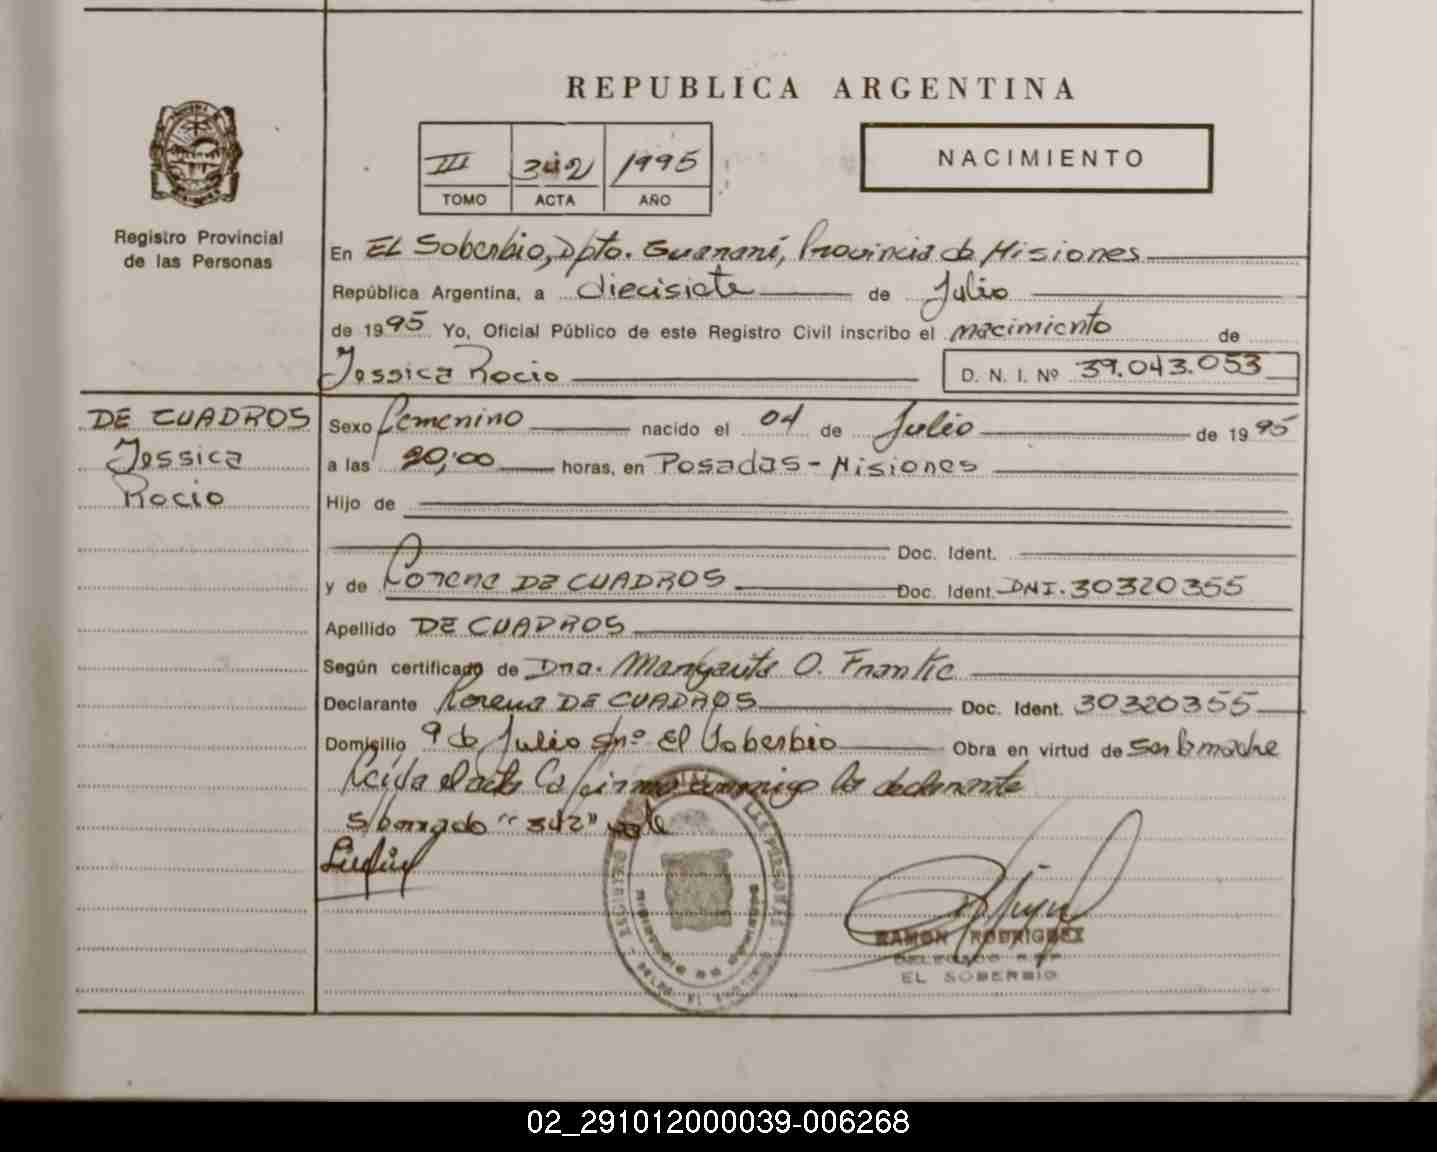 REPUBLICA ARGENTINA
III 342 1995
TOMO ACTA AÑO
NACIMIENTO
Registro Provincial
de las Personas
En EL Soberbio, Dpto. Guaraní, Provincia de Misiones
República Argentina, a diecisiete de Julio
de 1995 Yo, Oficial Público de este Registro Civil inscribo el nacimiento de
Jessica Rocio
D. N. I. Nº 39.043.053
DE CUADROS
Jessica
Rocio
Sexo femenino nacido el 04 de Julio de 1995
a las 20,00 horas, en Posadas - Misiones
Hijo de
Doc. Ident.
y de Lorena DE CUADROS Doc. Ident. DNI. 30320355
Apellido DE CUADROS
Según certificado de Dna. Margarita O. Frantic
Declarante Lorena DE CUADROS Doc. Ident. 30320355
Domicilio 9 de Julio s/nº El Soberbio Obra en virtud de ser la madre
Leída el acta la firma conmigo la declarante
s/borrado "342" vale
RAMON RODRIGUEZ
DELEGADO R.P.P
EL SOBERBIO
02_291012000039-006268